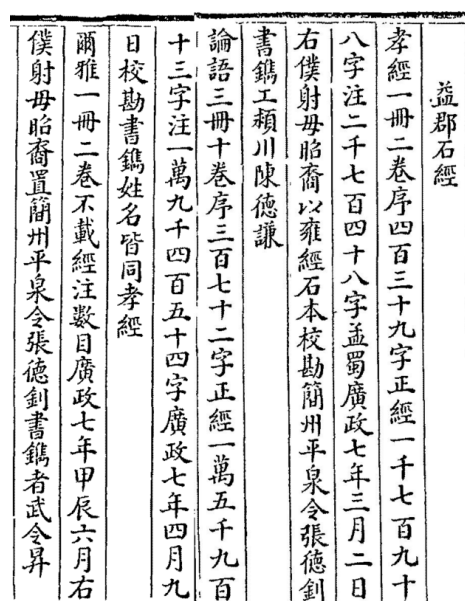 益郡石經
孝經一冊二卷序四百三十九字正經一千七百九十
八字注二千七百四十八字孟蜀廣政七年三月二日
右僕射毋昭裔以雍經石本校勘簡州平泉令張德釗
書鐫工潁川陳德謙
論語三冊十卷序三百七十二字正經一萬五千九百
十三字注一萬九千四百五十四字廣政七年四月九
日校勘書鐫姓名皆同孝經
爾雅一冊二卷不載經注數目廣政七年甲辰六月右
僕射毋昭裔置簡州平泉令張德釗書鐫者武令昇